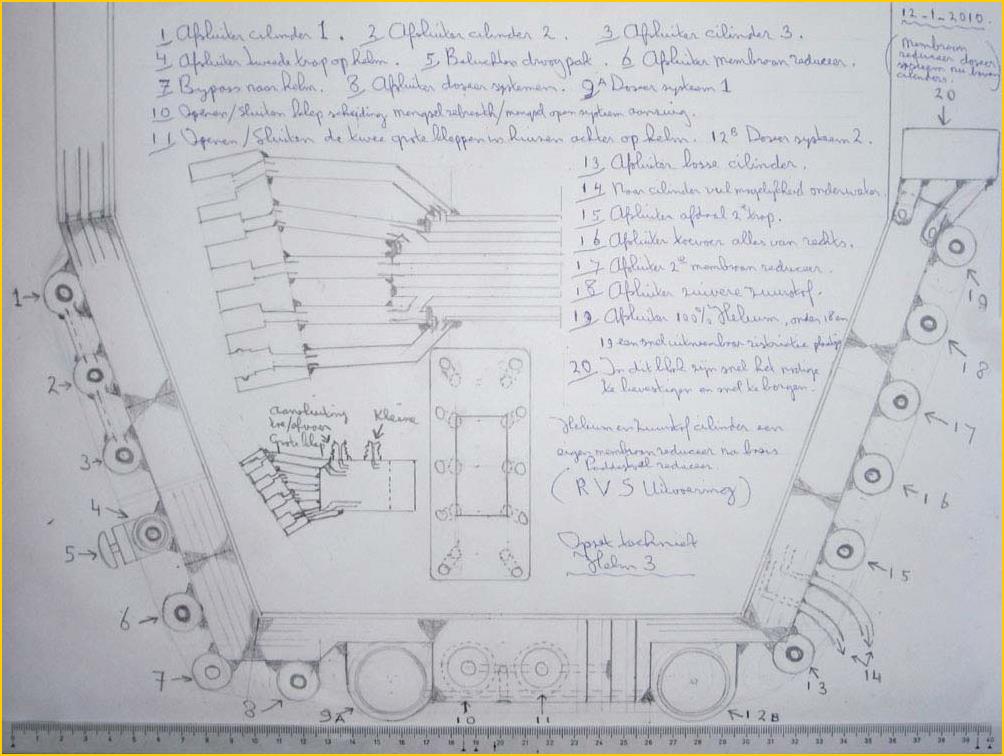 12-1-2010.
1 Afsluiter cilinder 1. 2 Afsluiter cilinder 2. 3 Afsluiter cilinder 3.
4 Afsluiter tweede trap op helm. 5 Beluchten droogpak. 6 Afsluiter membraan reduceer.
7 Bypass naar helm. 8 Afsluiter doseer systemen. 9A Doseer systeem 1
10 Openen/sluiten klep scheiding mengsel rebreath/mengsel open systeem
11 Openen/Sluiten de twee grote kleppen in huizen achter op helm. 12B Doseer systeem 2.
membraan
reduceer doseer
systeem nu boven
cilinders.
20
13 Afsluiter losse cilinder.
14 Naar cilinder vul mogelijkheid onderwater.
15 Afsluiter 2e trap.
16 Afsluiter toevoer alles van rechts.
17 Afsluiter 2e membraan reduceer.
18 Afsluiter zuivere zuurstof.
19 Afsluiter 100% Helium, onder 18 en
19 een snel uitneembaar
20 In dit blok zijn snel het nodige
te bevestigen en snel te borgen.
Helium en zuurstof cilinder een
eigen membraan reduceer
reduceer
(RVS Uitvoering)
Opzet techniek
Helm 3
aansluiting
toe/afvoer
grote klep
Kleine
1
2
3
4
5
6
7
8
9A
10
11
12B
13
14
15
16
17
18
19